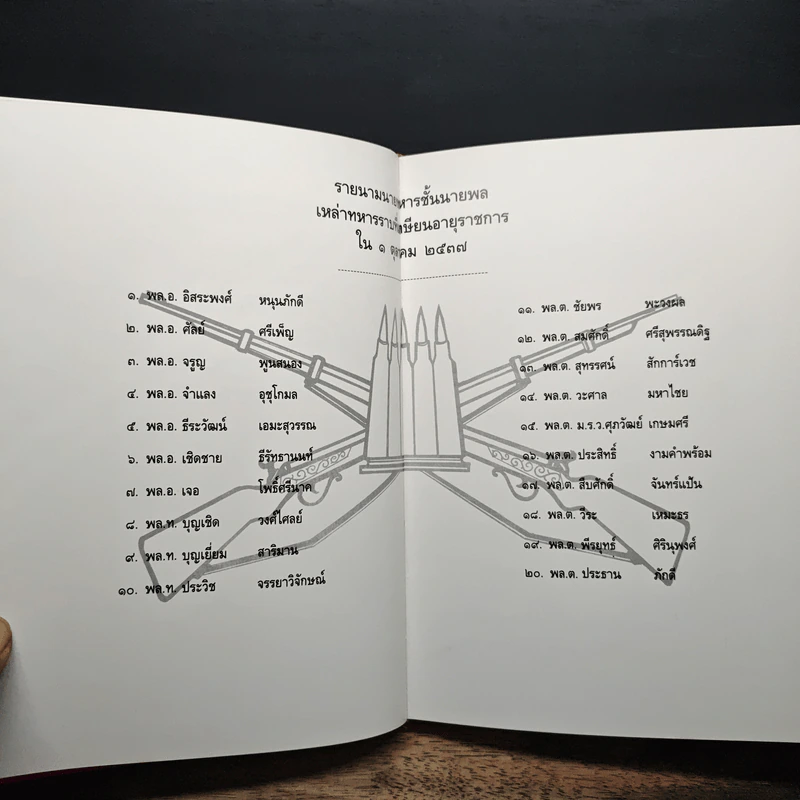 รายนามนายทหารชั้นนายพล
เหล่าทหารราบที่เกษียนอายุราชการ
ใน ๑ ตุลาคม ๒๕๓๗
๑. พล.อ. อิสระพงศ์ หนุนภักดี
๒. พล.อ. ศัลย์ ศรีเพ็ญ
๓. พล.อ. จรูญ พูนสนอง
๔. พล.อ. จำแลง อุชุโกมล
๕. พล.อ. ธีระวัฒน์ เอมะสุวรรณ
๖. พล.อ. เชิดชาย ธีรัทธานนท์
๗. พล.อ. เจอ โพธิ์ศรีนาค
๘. พล.ท. บุญเชิด วงศ์ไศลย์
๙. พล.ท. บุญเยี่ยม สาริมาน
๑๐. พล.ท. ประวิช จรรยาวิจักษณ์
๑๑. พล.ต. ชัยพร พะวงผล
๑๒. พล.ต. สมศักดิ์ ศรีสุพรรณดิฐ
๑๓. พล.ต. สุทรรศน์ สักการ์เวช
๑๔. พล.ต. วะศาล มหาไชย
๑๕. พล.ต. ม.ร.ว.ศุภวัฒย์ เกษมศรี
๑๖. พล.ต. ประสิทธิ์ งามคำพร้อม
๑๗. พล.ต. สืบศักดิ์ จันทร์แป้น
๑๘. พล.ต. วีระ เหมะธร
๑๙. พล.ต. พีรยุทธ์ ศิรินุพงศ์
๒๐. พล.ต. ประธาน ภักดี